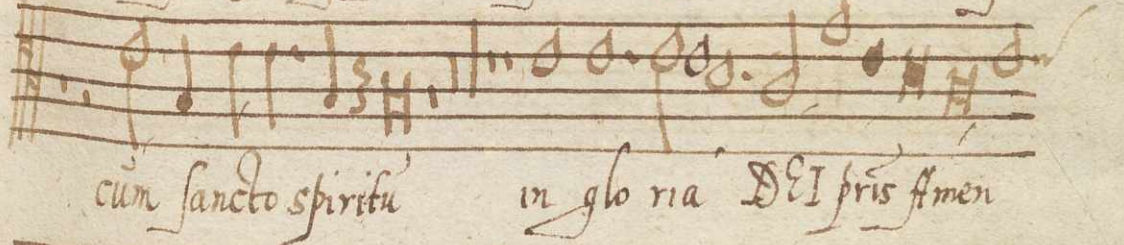 cũm sancto spiritũ in glo ria DEI pris̃ Amen